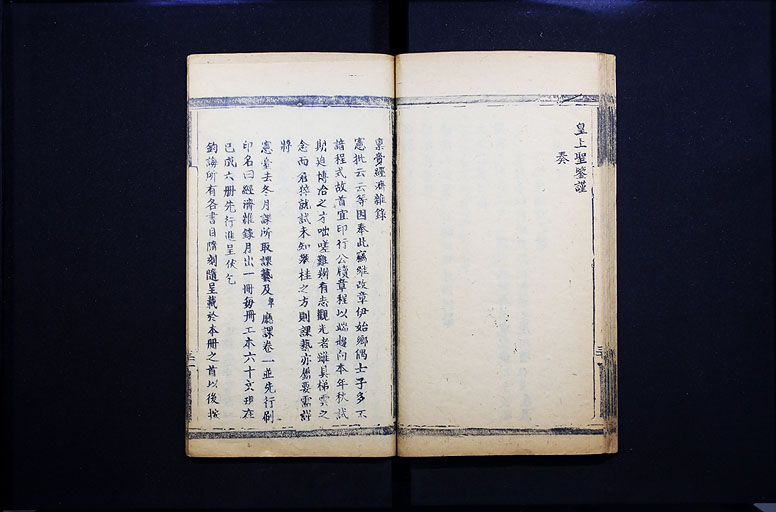 皇上聖鑒謹
奏
稟賫經濟雜錄
憲批云云等因奉此竊維改章伊始鄉隅士子多不
諳程式故首宜印行公牘章程以端趨向本年秋試
期迫博洽之才咄嗟難辦有志觀光者雖具梯雲之
念而名猝就試未知攀桂之方則課藝亦屬要需詳
將
憲臺去冬月課所取課藝及卑廳課卷一並先行刷
印名曰經濟雜錄月出一冊每冊工本六十文現在
已成六冊先行進呈伏乞
鈞誨所有各書目隨刻隨呈載於本冊之首以後按